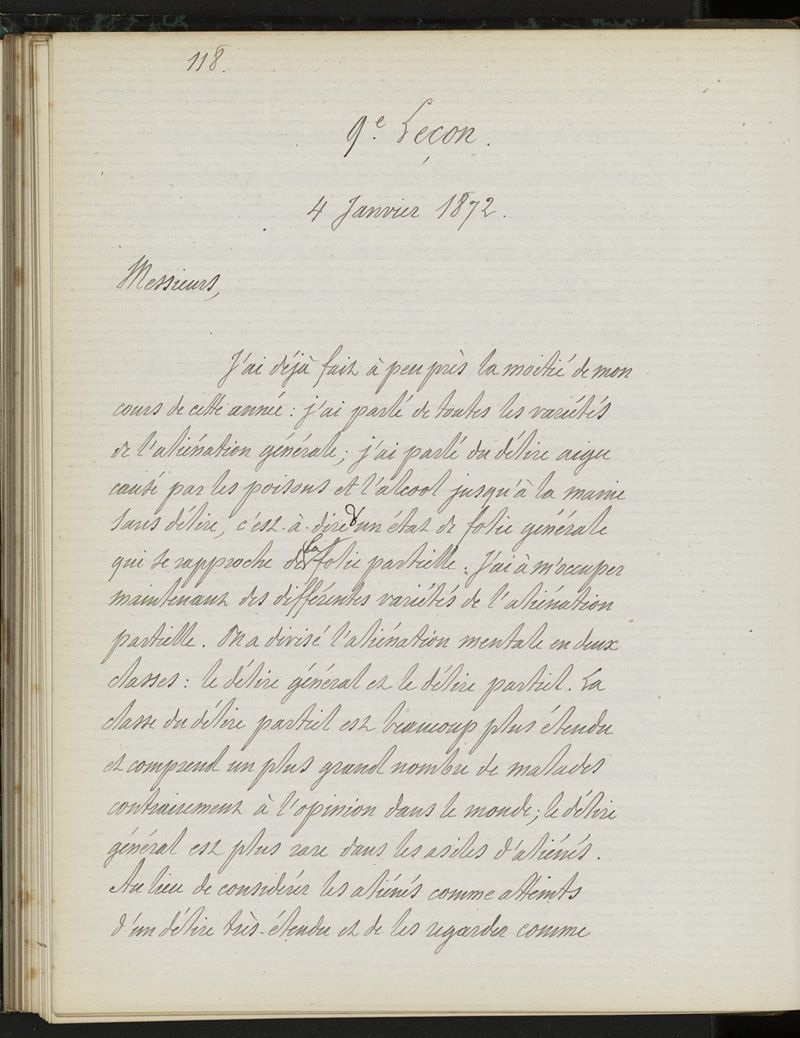 118.
9.e Leçon.
4 Janvier 1872.
Messieurs,
J'ai déjà fait à peu près la moitié de mon
cours de cette année : j'ai parlé de toutes les variétés
de l'aliénation générale ; j'ai parlé du délire aigu
causé par les poisons et l'alcool jusqu'à la manie
sans délire, c'est-à-dire d'un état de folie générale
qui se rapproche de la folie partielle. J'ai à m'occuper
maintenant des différentes variétés de l'aliénation
partielle. On a divisé l'aliénation mentale en deux
classes : le délire général et le délire partiel. La
classe du délire partiel est beaucoup plus étendu
et comprend un plus grand nombre de malades
contrairement à l'opinion dans le monde ; le délire
général est plus rare dans les asiles d'aliénés.
Au lieu de considérer les aliénés comme atteints
d'un délire très-étendu et de les regarder comme